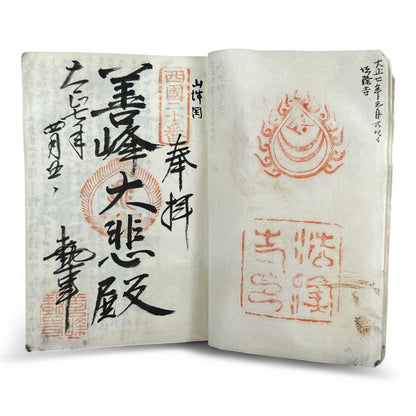 大正七年
法隆寺
法隆
寺印
山城国
奉拝
西國二十番
善峰大悲殿
大正七年
四月五日
執事